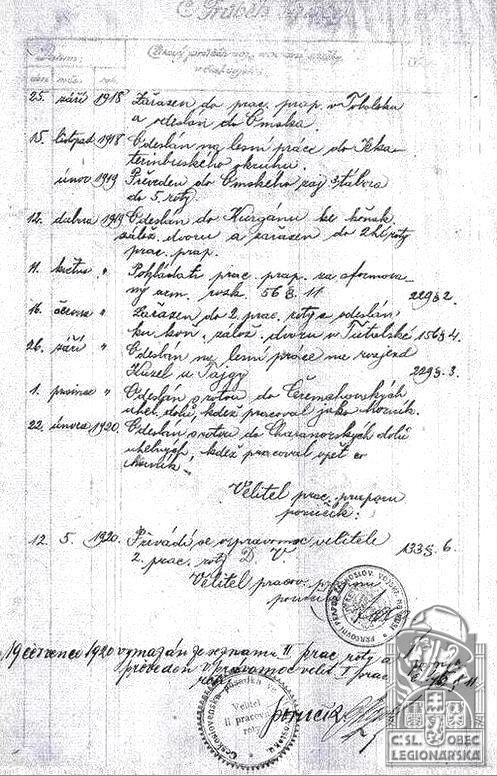 Datum:
den měs. rok
25. září 1918 Zařazen do prac. prap. v Tobolsku
a odeslán do Omska.
15. listopad 1918 Odeslán na lesní práce do Jeka-
terinburského okruhu.
únor 1919 Převeden do Omského zaj. tábora
do 5. roty.
12. dubna 1919 Odeslán do Kurgánu ke koňsk.
zálož. dvoru a zařazen do 2hé roty
prac. prap.
11. květus " Pokládati prac. prap. za sformova-
ný arm. rozk. 56 § 11. 229 § 2.
16. června " Zařazen do 2. prac. roty a odeslán
ku koň. zálož. dvoru v 156 § 4.
26. září " Odeslán na lesní práce na
u Tajgy 229 § . 3.
1. prosince " Odeslán s rotou do
uhel. dolů, kdež pracoval jako horník.
22. února 1920. Odeslán s rotou do dolů
uhelných, kdež pracoval opět co
horník.
Velitel prac. praporu
poručík:
12. 5. 1920. Převádí se v pravomoc velitele 133 § . 6.
2. prac. roty D. V.
Velitel pracov. praporu
poručík
19 července 1920 vymazán ze seznamu II prac roty a
převeden v pravomoc velit. I prac.
Velitel
II pracovní
roty
poručík
ČS. OBEC
LEGIONÁŘSKÁ